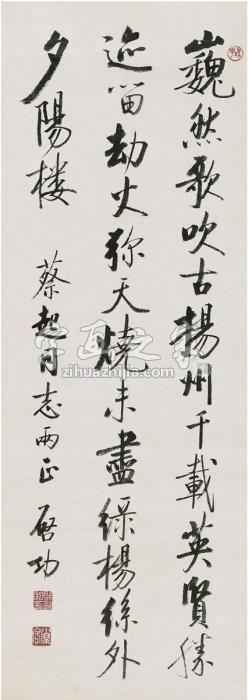 巍然歌吹古揚州千載英賢勝
迹留劫火弥天燒未盡綠楊絲外
夕陽楼
蔡超同志兩正 啓功
字画之家
zihuazhijia.com